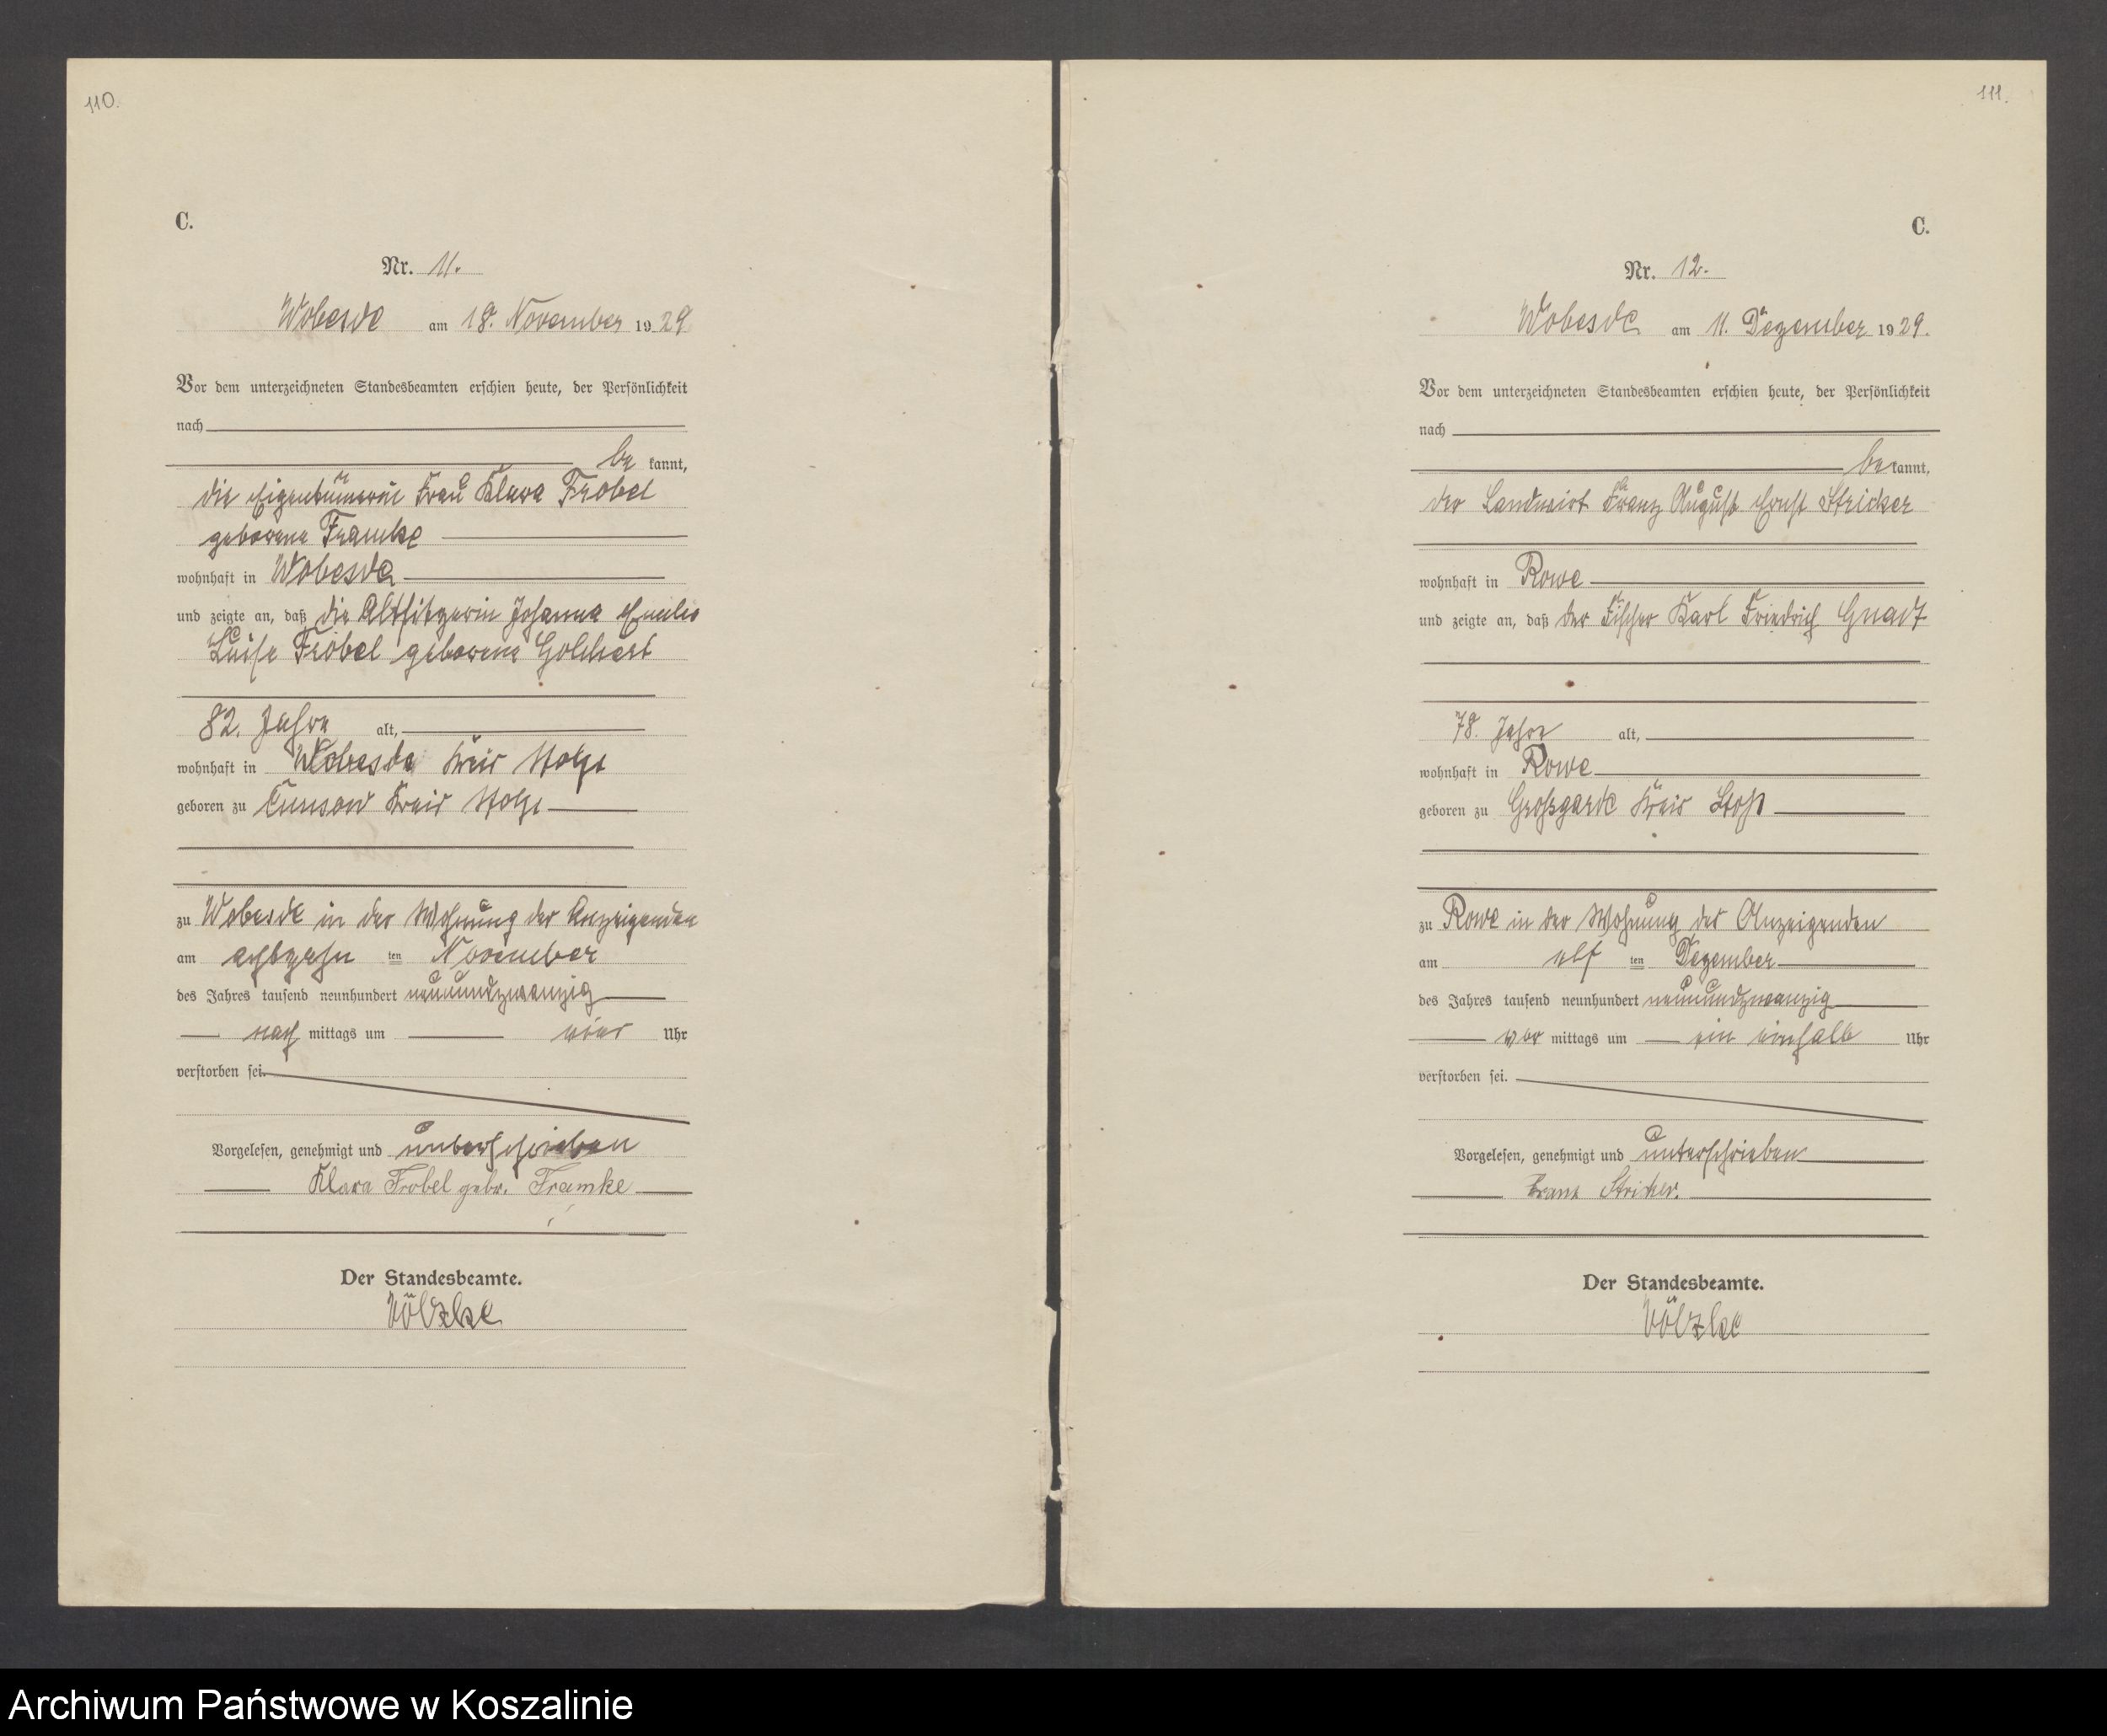 110.
C.
Nr. 11.
Wobesde am 18. November 1929
Vor dem unterzeichneten Standesbeamten erschien heute, der Persönlichkeit
nach
be kannt,
die Eigentümerin Frau Klara Frobel
geborene Framke
wohnhaft in Wobesde
und zeigte an, daß die Altsitzerin Johanna Emilie
Luise Fröbel geborene
82. Jahre alt,
wohnhaft in Wobesde Kreis Stolp
geboren zu Cunsow Kreis Stolp
zu Wobesde in der Wohnung der Anzeigenden
am achtzehn ten November
des Jahres tausend neunhundert neunundzwanzig
nach mittags um vier Uhr
verstorben sei.
Vorgelesen, genehmigt und unterschrieben
Klara Frobel gebr. Framke
Der Standesbeamte.
Völzke
111.
C.
Nr. 12.
Wobesde am 11. Dezember 1929.
Vor dem unterzeichneten Standesbeamten erschien heute, der Persönlichkeit
nach
bekannt,
der Landwirt Franz August Ernst Stricker
wohnhaft in Rowe
und zeigte an, daß der Fischer Karl Friedrich Gnadt
78. Jahre alt,
wohnhaft in Rowe
geboren zu Großgarde Kreis Stolp
zu Rowe in der Wohnung des Anzeigenden
am elf ten Dezember
des Jahres tausend neunhundert neunundzwanzig
vor mittags um ein einhalb Uhr
verstorben sei.
Vorgelesen, genehmigt und unterschrieben
Franz Stricker.
Der Standesbeamte.
Völzke
Archiwum Państwowe w Koszalinie